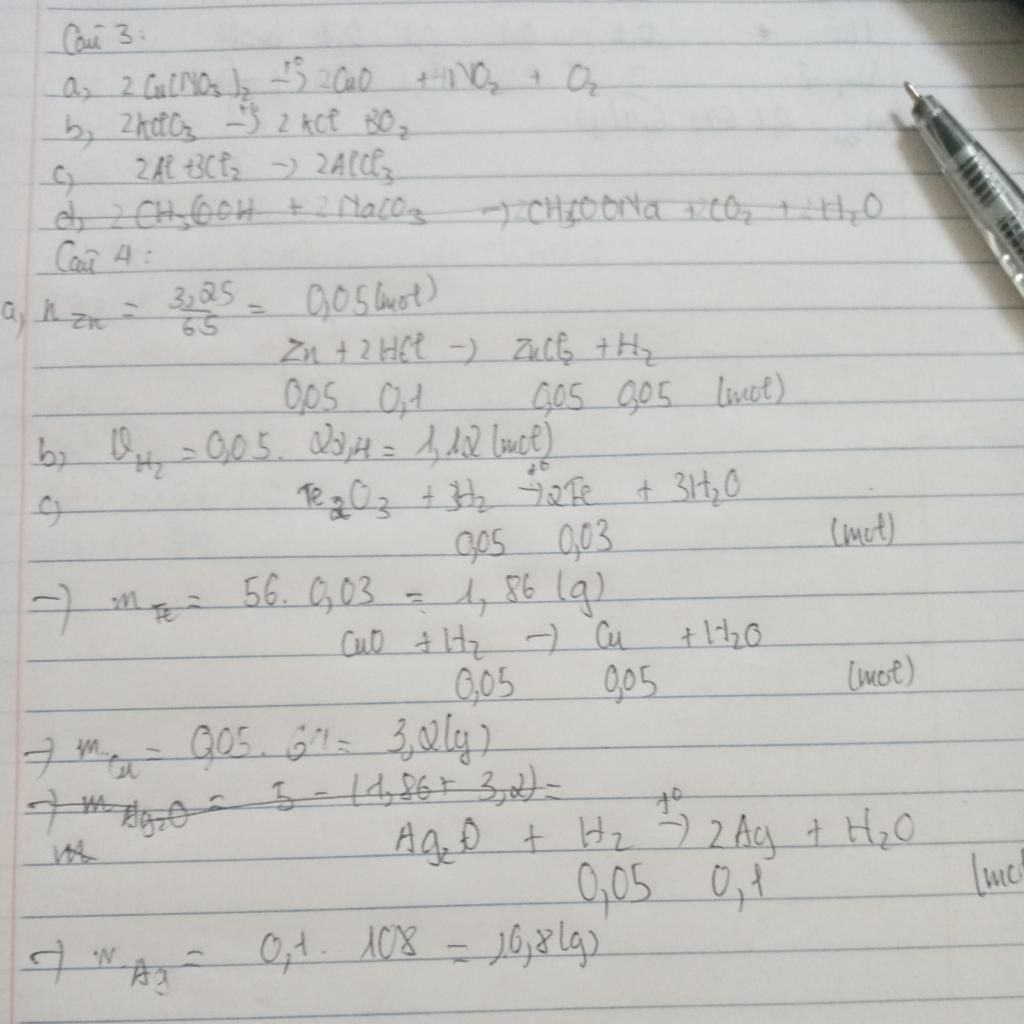 Câu 3:
a, 2Cu(NO₃)₂ →t° 2CuO + 4NO₂ + O₂
b, 2KClO₃ →t° 2KCl + 3O₂
c, 2Al + 3Cl₂ → 2AlCl₃
d, 2CH₃COOH + 2NaCO₃ → 2CH₃COONa + 2CO₂ + 2H₂O
Câu 4:
a, n Zn = 3,25/65 = 0,05 (mol)
Zn + 2HCl → ZnCl₂ + H₂
0,05 0,1 0,05 0,05 (mol)
b, V H₂ = 0,05. 22,4 = 1,12 (mol)
c, Fe₂O₃ + 3H₂ →t° 2Fe + 3H₂O
0,05 0,03 (mol)
→ m Fe = 56. 0,03 = 1,86 (g)
CuO + H₂ → Cu + H₂O
0,05 0,05 (mol)
→ m Cu = 0,05. 64 = 3,2 (g)
→ m Ag₂O = 5 - (1,86 + 3,2) =
m Ag₂O + H₂ →t° 2Ag + H₂O
0,05 0,1 (mol
→ m Ag = 0,1. 108 = 10,8 (g)